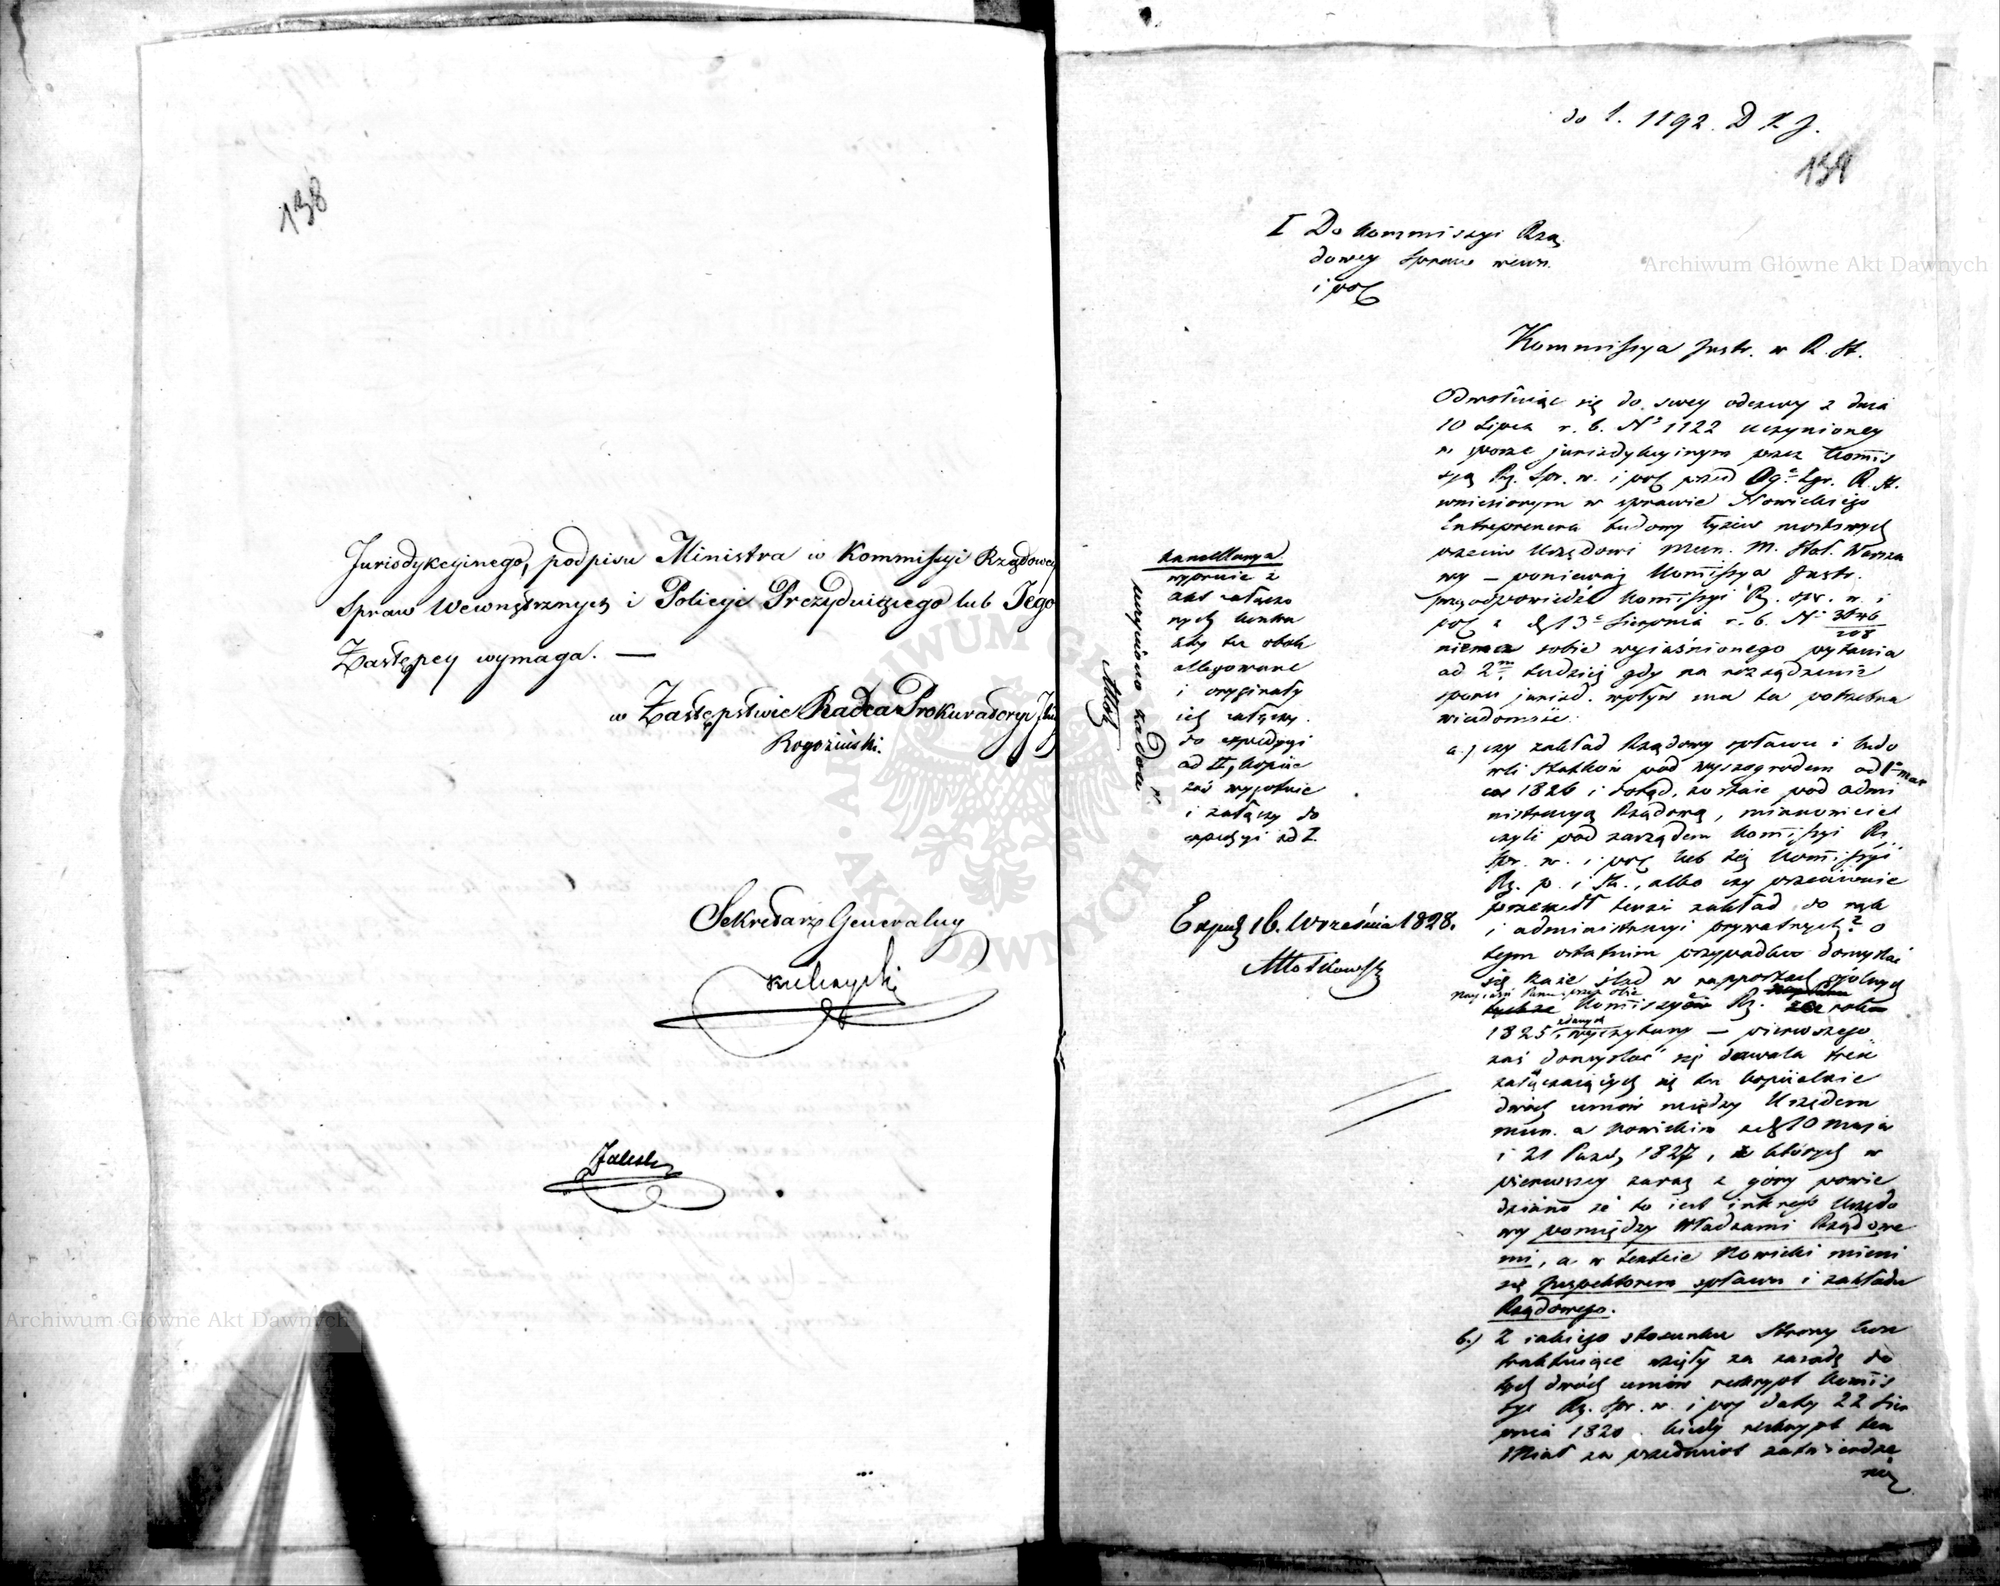 138
Jurisdykcyinego, podpisu Ministra w Kommissyi Rządowey
Spraw Wewnętrznych i Policyi Prezyduiącego lub Jego
Zastępcy wymaga. —
w Zastępstwie Radca Prokuratoryi
Rogoziński.
Sekretarz Generalny
do l. 1192. D K J.
139
I Do Kommissyi Rzą
dowey Spraw wewn.
i pol
Kommissya Justr. w R. St.
Odwołuiąc się do swey odezwy z dnia
10 Lipca r. b. Nº 1122 uczynioney
w sporze jurisdykcyinym przez Komis
syą Rz. Spr. w. i pol przed R. St.
wniesionym w sprawie Nowickiego
Entreprenera budowy łyżew mostowych
przeciw Urzędowi Mun. M. Stoł. Warsza
wy — ponieważ Kommissya Justr.
w odpowiedzi Kommissyi Rz. Spr. w. i
pol z d. 13 Sierpnia r. b. Nº
niema sobie wyiaśnionego pytania
ad 2, tudzież gdy na rozsądzenie
sporu jurisd. wpływ ma ta potrzebna
wiadomość:
a.) czy zakład Rządowy spławu i budo
wli statków pod Wyszogrodem od 1 mar
ca 1826 i dotąd, zostaie pod admi
nistracyą Rządową, mianowicie
czyli pod zarządem Kommissyi Rz.
Spr. w. i pol lub też Kommissyi
Rz. p. i Sk., albo czy przeciwnie
przeszedł tenże zakład do rąk
i administracyi prywatnych? o
tym ostatnim przypadku domyślać
się każe ślad w rapportach ogólnych
Kommissyów Rz.
1825 zdanych wyczytany — pierwszego
zaś domyślać się dozwala treść
załączaiących się tu kopiialnie
dwóch umów między Urzędem
mun. a Nowickim z d. 10 Maja
i 21 Paźd. 1827, z których w
pierwszey zaraz z góry powie
dziano że to iest interes Urzędo
wy pomiędzy Władzami Rządowe
mi, a w tekście Nowicki mieni
się Inspektorem spławu i zakładu
Rządowego.
b.) Z iakiego stosunku Strony kon
traktuiące wzięły za zasadę do
tych dwóch umów reskrypt Kommis
syi Rz. Spr. w. i pol daty 22 Sier
pnia 1820. kiedy reskrypt ten
miał za przedmiot zatwierdze
nie
Kancellarya
wypruie z
akt załączo
nych
aby tu obok
allegowane
i oryginały
ich załączy
do expedycyi
ad II, kopiie
zaś wygotuie
i załączy do
expedycyi ad I.
Exped 16. Września 1828.
Archiwum Główne Akt Dawnych
Archiwum Główne Akt Dawnych
ARCHIWUM GŁÓWNE AKT DAWNYCH